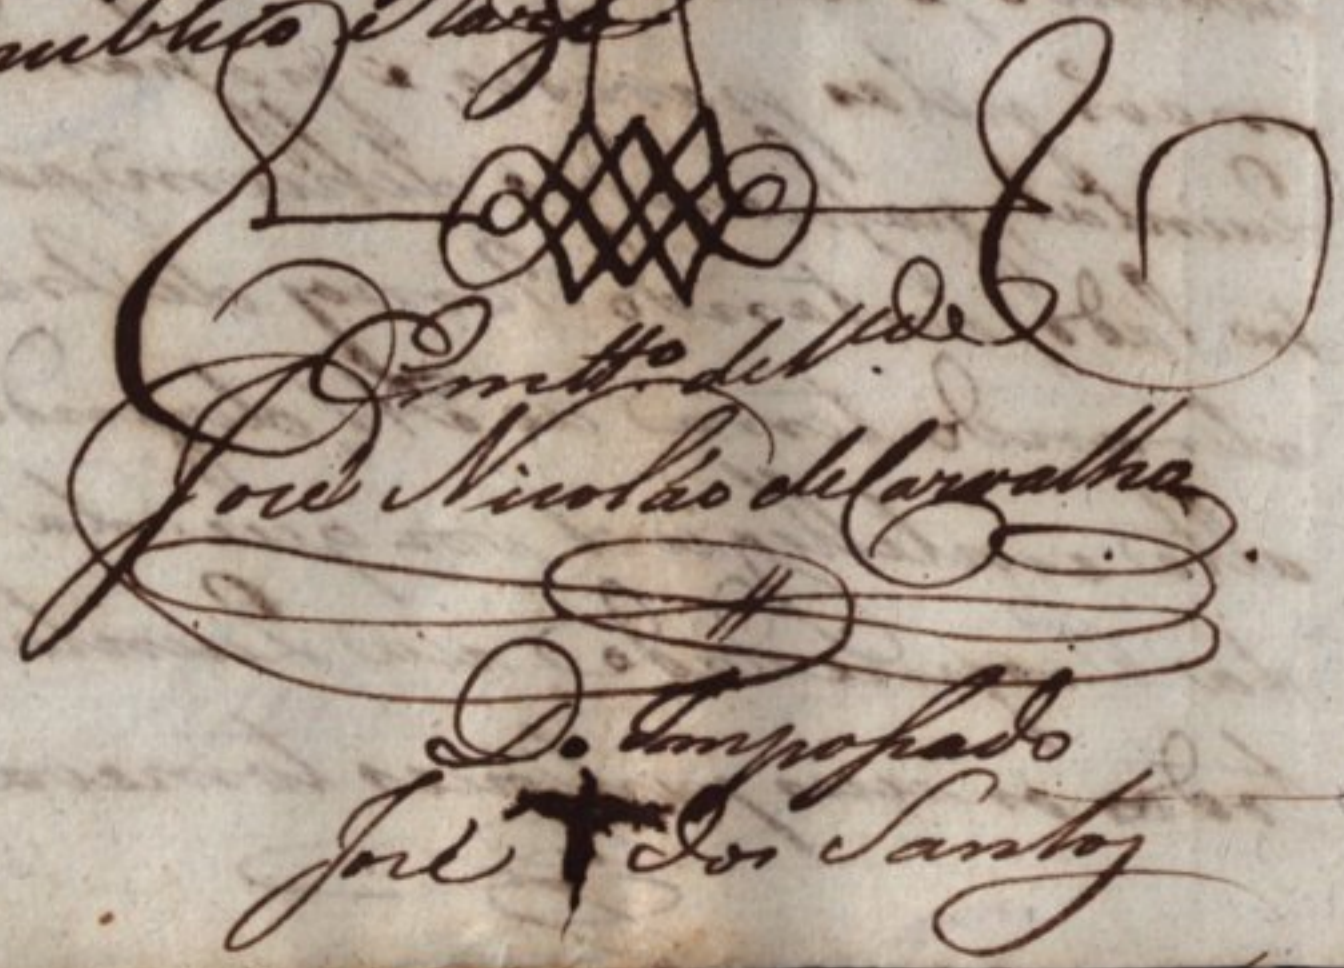 publico e razo
Em testto de V.de
José Nicoláo de Carvalho
Do Empossado
José dos Santos